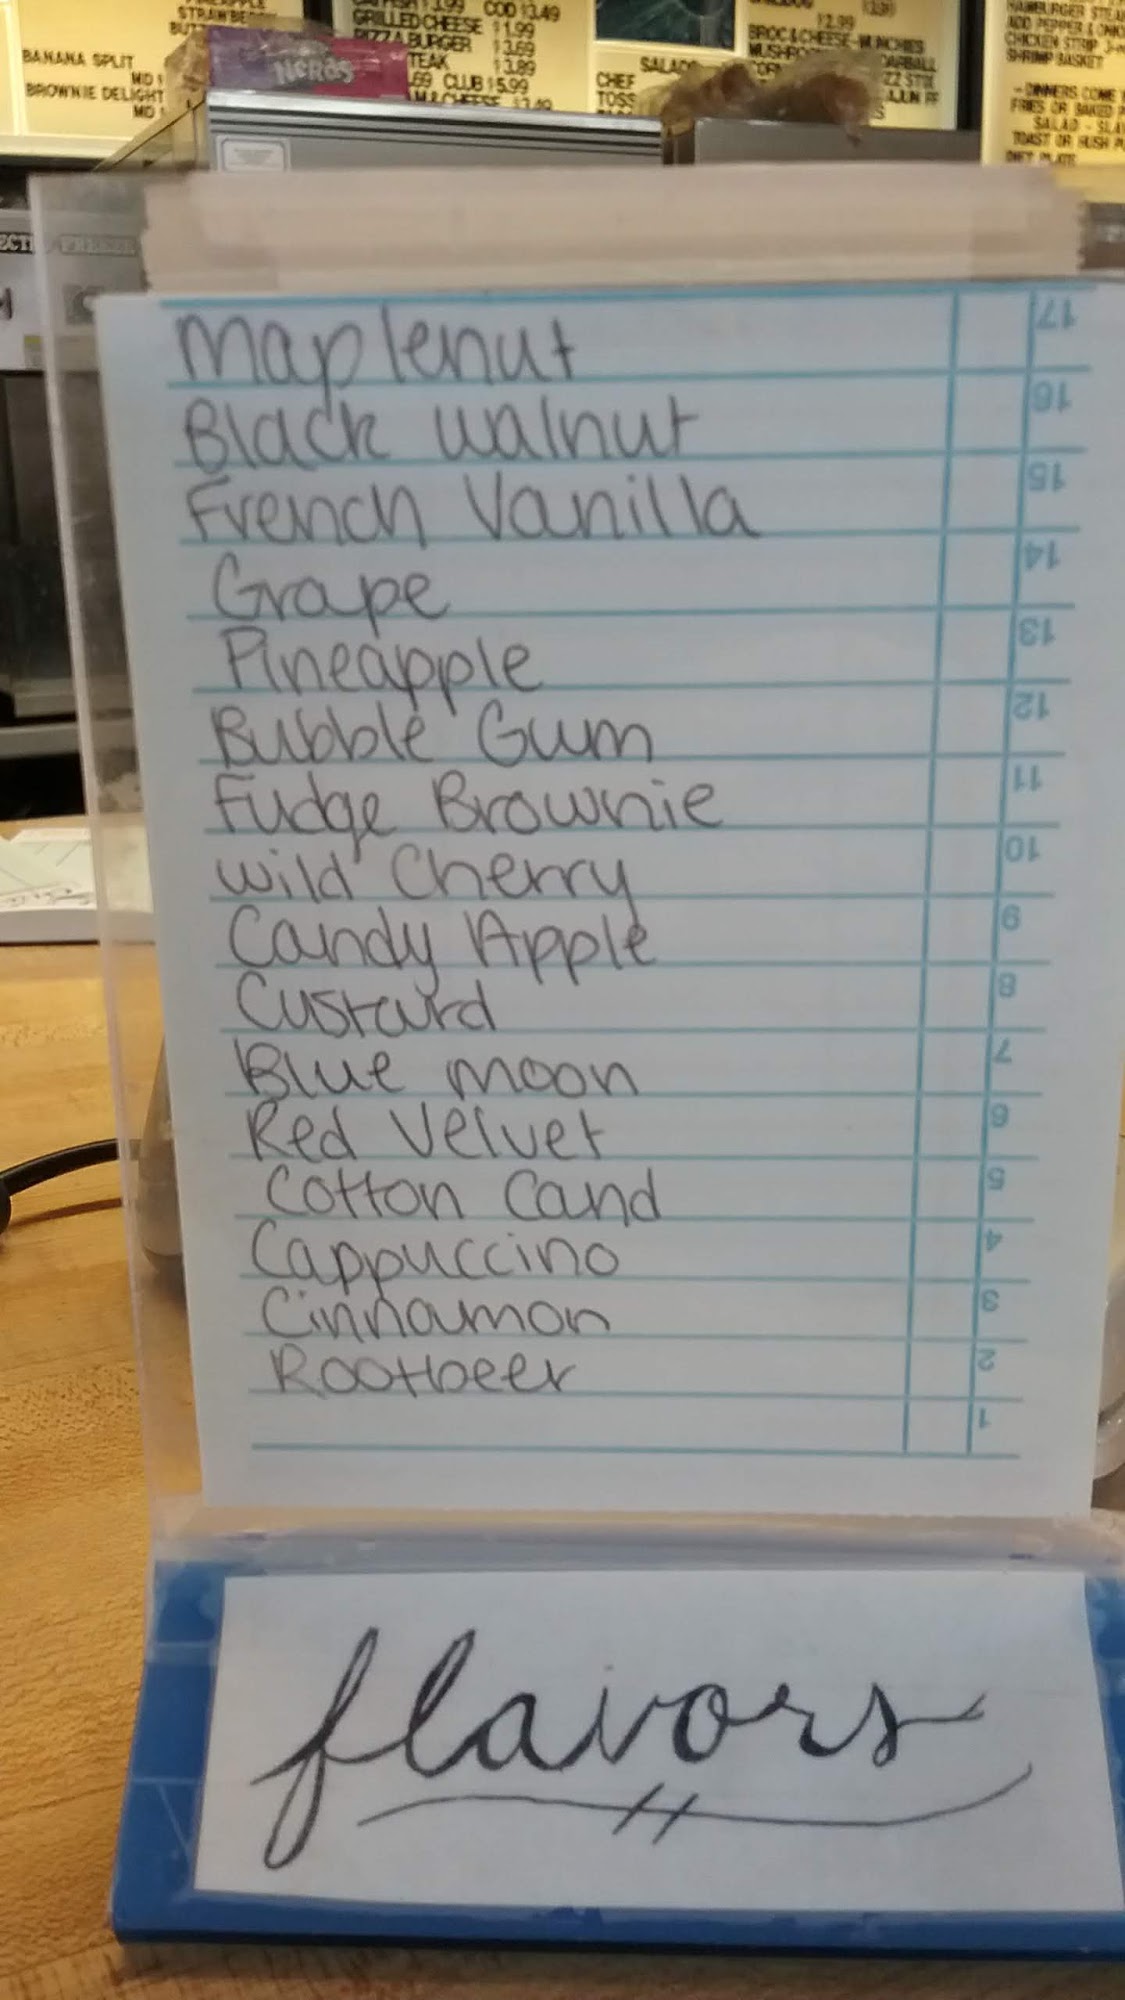 STRAWBERRY
BANANA SPLIT
MD
BROWNIE DELIGHT
MD
COD $3.49
GRILLED CHEESE $1.99
PIZZA BURGER $3.69
$3.89
CLUB $5.99
$2.99
BROC & CHEESE
SALADS
CHEF
TOSS
HAMBURGER
CHICKEN STRIP
SHRIMP BASKET
- DINNERS COME
FRIES OR BAKED
SALAD - SLA
TOAST OR HUSH
NERDS
Maplenut 17
Black Walnut 16
French Vanilla 15
Grape 14
Pineapple 13
Bubble Gum 12
Fudge Brownie 11
Wild Cherry 10
Candy Apple 9
Custard 8
Blue moon 7
Red Velvet 6
Cotton Cand 5
Cappuccino 4
Cinnamon 3
Rootbeer 2
1
flavors